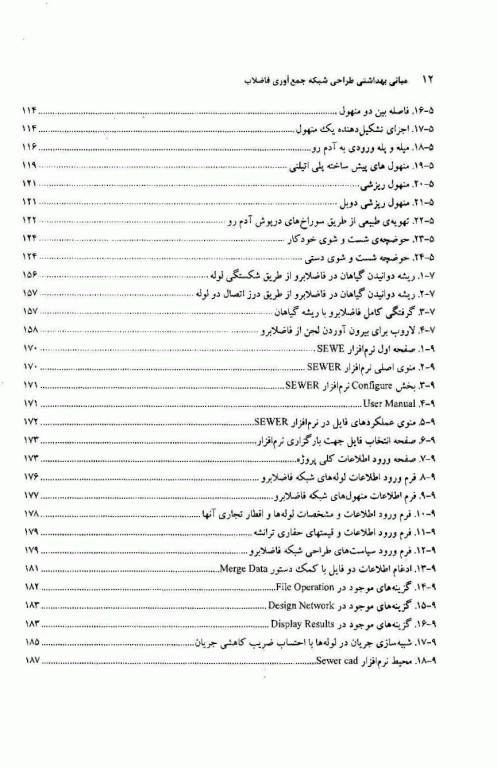 ۱۲ مبانی بهداشتی طراحی شبکه جمع آوری فاضلاب
۵-۱۶. فاصله بین دو منهول ۱۱۴
۵-۱۷. اجزای تشکیل‌دهنده یک منهول ۱۱۴
۵-۱۸. میله و پله ورودی به آدم رو ۱۱۶
۵-۱۹. منهول های پیش ساخته پلی اتیلنی ۱۱۹
۵-۲۰. منهول ریزشی ۱۲۱
۵-۲۱. منهول ریزشی دوبل ۱۲۱
۵-۲۲. تهویه‌ی طبیعی از طریق سوراخ‌های درپوش آدم رو ۱۲۲
۵-۲۳. حوضچه‌ی شست و شوی خودکار ۱۲۴
۵-۲۴. حوضچه شست و شوی دستی ۱۲۴
۷-۱. ریشه دوانیدن گیاهان در فاضلابرو از طریق شکستگی لوله ۱۵۶
۷-۲. ریشه دوانیدن گیاهان در فاضلابرو از طریق درز اتصال دو لوله ۱۵۷
۷-۳. گرفتگی کامل فاضلابرو با ریشه گیاهان ۱۵۷
۷-۴. لاروب برای بیرون آوردن لجن از فاضلابرو ۱۵۸
۹-۱. صفحه اول نرم‌افزار SEWE ۱۷۰
۹-۲. منوی اصلی نرم‌افزار SEWER ۱۷۰
۹-۳. بخش Configure نرم‌افزار SEWER ۱۷۱
۹-۴. User Manual ۱۷۱
۹-۵. منوی عملکردهای فایل در نرم‌افزار SEWER ۱۷۲
۹-۶. صفحه انتخاب فایل جهت بارگزاری نرم‌افزار ۱۷۳
۹-۷. صفحه ورود اطلاعات کلی پروژه ۱۷۳
۹-۸. فرم ورود اطلاعات لوله‌های شبکه فاضلابرو ۱۷۶
۹-۹. فرم اطلاعات منهول‌های شبکه فاضلابرو ۱۷۷
۹-۱۰. فرم ورود اطلاعات و مشخصات لوله‌ها و اقطار تجاری آنها ۱۷۸
۹-۱۱. فرم ورود اطلاعات و قیمتهای حفاری ترانشه ۱۷۹
۹-۱۲. فرم ورود سیاست‌های طراحی شبکه فاضلابرو ۱۷۹
۹-۱۳. ادغام اطلاعات دو فایل با کمک دستور Merge Data ۱۸۱
۹-۱۴. گزینه‌های موجود در File Operation ۱۸۲
۹-۱۵. گزینه‌های موجود در Design Network ۱۸۳
۹-۱۶. گزینه‌های موجود در Display Results ۱۸۳
۹-۱۷. شبیه‌سازی جریان در لوله‌ها با احتساب ضریب کاهشی جریان ۱۸۵
۹-۱۸. محیط نرم‌افزار Sewer cad ۱۸۷